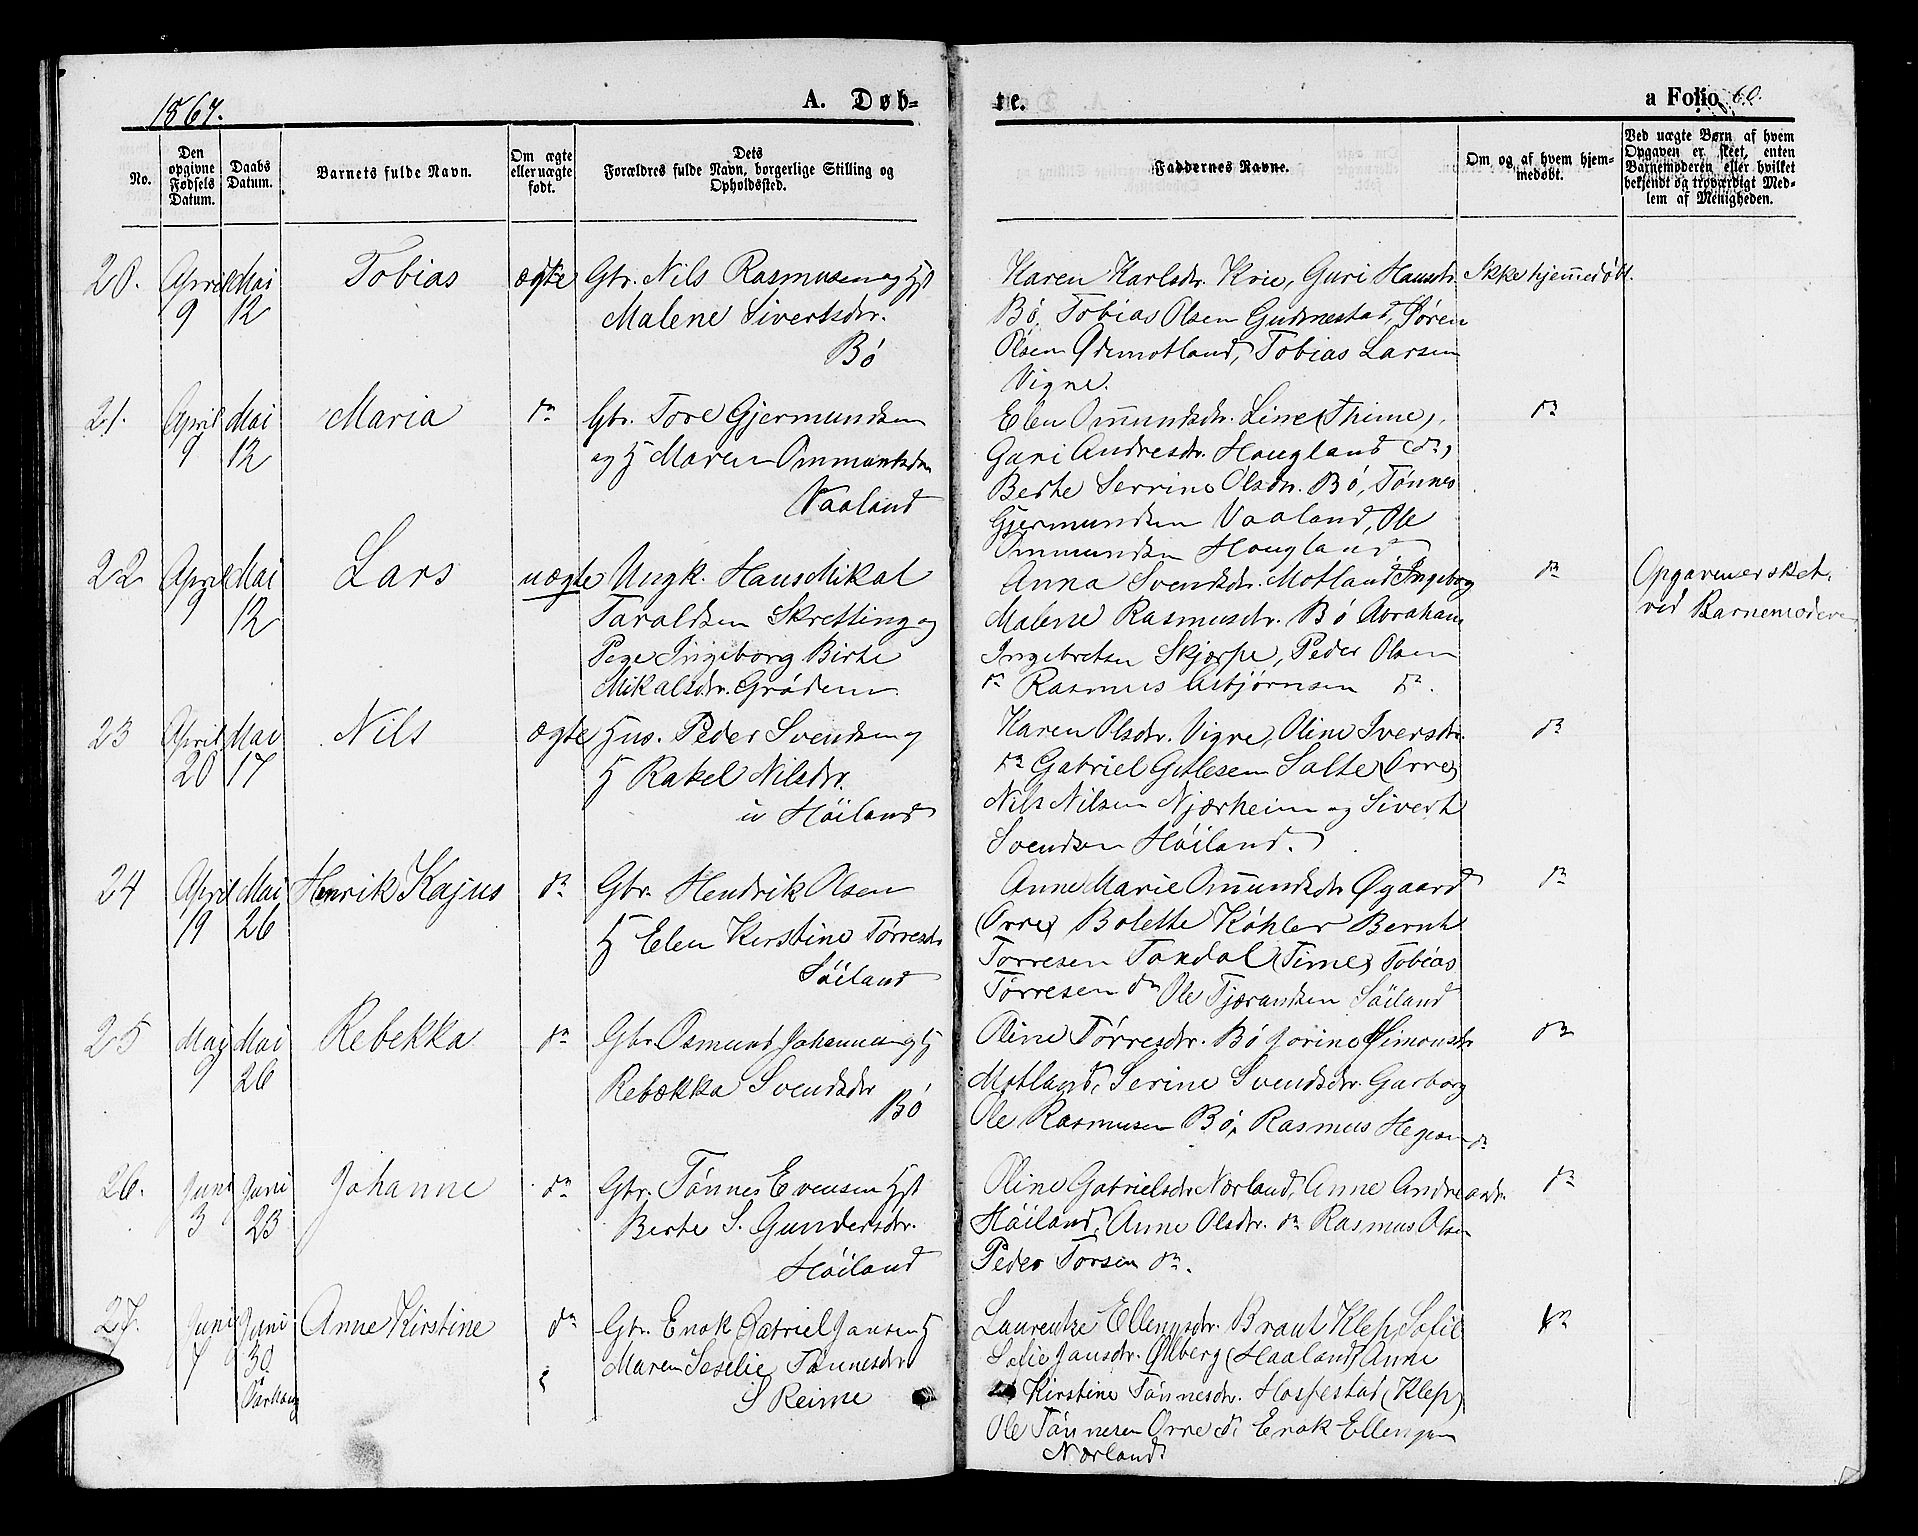 1867.
A. Døb-
te.
a Folio 60.
No.
Den opgivne Fødsels Datum.
Daabs Datum.
Barnets fulde Navn.
Om ægte eller uægte født.
Dets Forældres fulde Navn, borgerlige Stilling og Opholdssted.
Faddernes Navne.
Om og af hvem hjemmedøbt.
Ved uægte Børn, af hvem Opgaven er skeet, enten Barnemoderen eller hvilket bekjendt og troværdigt Medlem af Menigheden.
20. April 9 Mai 12 Tobias ægte
Gbr. Nils Rasmusen og Hst
Malene Sivertsdr.
Bø
Karen Karlsdr. Krie, Guri Hansdr.
Bø, Tobias Olsen Gudmestad, Søren
Olsen Ødemotland, Tobias Larsen
Vigne.
Ikke hjemmedøbt.
21. April 9 Mai 12 Maria do
Gbr. Tore Gjermundsen
og H Maren Ommundsdr
Vaaland
Elen Omundsdr. Line (Thime),
Guri Andresdr. Hougland do,
Berte Serrine Olsdr. Bø, Tønnes
Gjermundsen Vaaland, Ole
Ommundsen Hougland
do
22 April 9 Mai 12 Lars uægte
Ungk. Hans Mikal
Taraldsen Skretting og
Pige Ingeborg Birte
Mikalsdr. Grødem
Anna Svendsdr. Motland, Ingeborg
Malene Rasmusdr. Bø Abraham
Ingebretsen Skjærpe, Peder Olsen
do Rasmus Asbjørnsen do.
do
Opgaven er skeet
ved Barnemoderen
23 April 20 Mai 17 Nils ægte
Hus. Peder Svendsen og
H Rakel Nilsdr.
u Høiland
Karen Olsdr. Vigre, Oline Iversdr.
do Gabriel Gitlesen Salte (Orre)
Nils Nilsen Njærheim og Sivert
Svendsen Høiland.
do
24 April 19 Mai 26 Henrik Kajus do
Gbr. Hendrik Olsen
H Elen Kirstine Tørresdr
Søiland
Anne Marie Omundsdr Øgaard
(Orre) Bolette Køhler Bernt
Tørresen Tandal (Time) Tobias
Tørresen do Ole Tjærandsen Søiland
do
25 Maj 9 Mai 26 Rebekka do
Gbr Osmund Johannesen og H
Rebækka Svendsdr
Bø
Oline Tørresdr. Bø Jorine Simonsdr
Motland, Serine Svendsdr. Garborg
Ole Rasmusen Bø, Rasmus do
do
26. Juni 3 Juni 23 Johanne do
Gbr. Tønnes Evensen Hst
Berte S. Gundersdr.
Høiland
Oline Gabrielsdr Nærland, Anne Andreasdr.
Høiland, Anne Olsdr. do Rasmus Olsen
Peder Torsen do.
do
27. Juni 7 Juni 30 Anne Kirstine do
Gbr. Enok Gabriel Jansen H
Maren Seselie Tønnesdr
S Reime
Laurentze Ellengsdr. Braut Klep, Sofie
Sofie Jansdr. Ølberg (Haaland) Anne
Kirstine Tønnesdr. Horpestad (Klep)
Ole Tønnesen Orre do Enok Ellengsen
Nærland
do